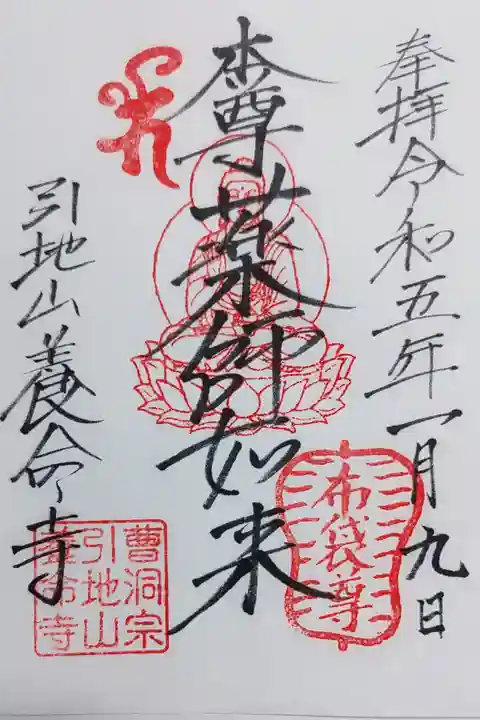 奉拝令和五年一月九日
布袋尊
本尊薬師如来
引地山養命寺
曹洞宗
引地山
養命寺